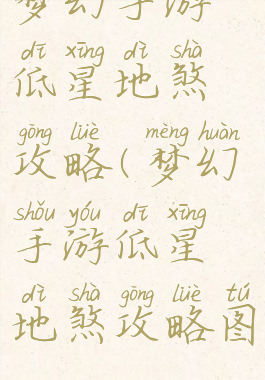 梦幻手游
dī xīng dì shà
低星地煞
gōng lüè mèng huàn
攻略(梦幻
shǒu yóu dī xīng
手游低星
dì shà gōng lüè tú
地煞攻略图